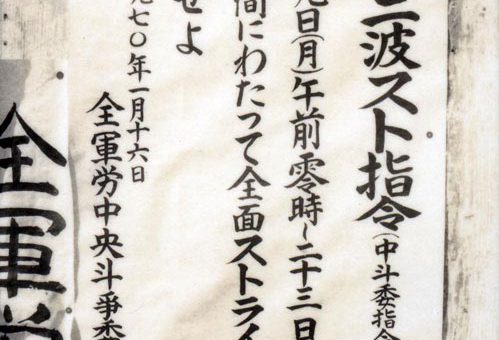 二波スト指令(中斗委指令
九日(月)午前零時~二十三日
間にわたって全面ストライ
せよ
九七〇年一月十六日
全軍労中央斗争委
全軍労